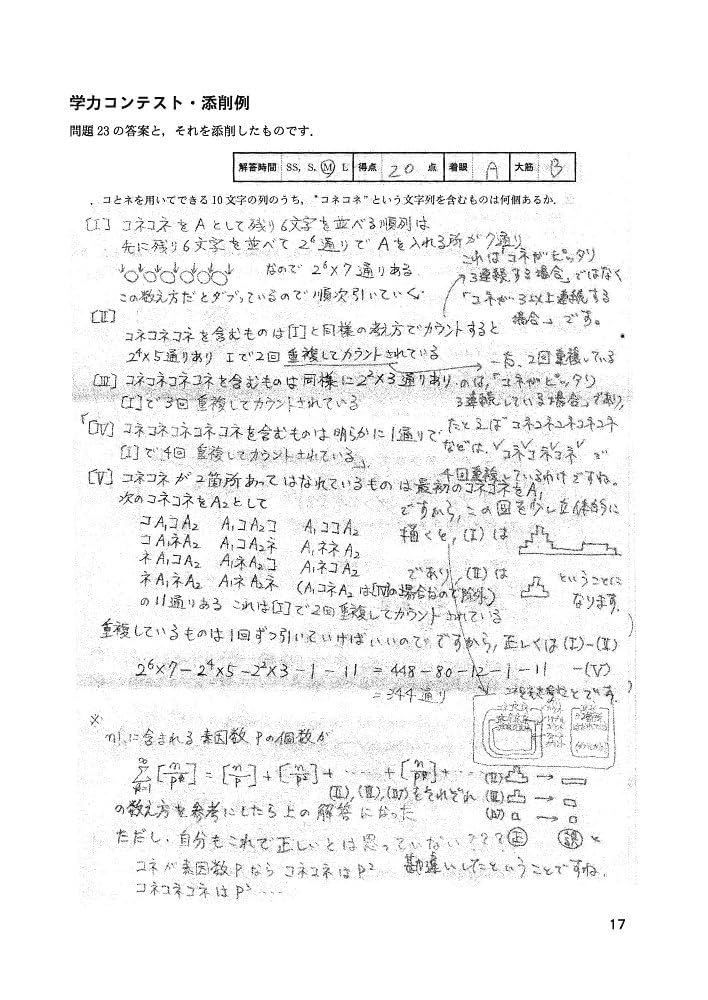 学力コンテスト・添削例
問題23の答案と，それを添削したものです．
解答時間 SS, S, M, L 得点 20 点 着眼 A 大筋 B
．コとネを用いてできる10文字の列のうち，“コネコネ”という文字列を含むものは何個あるか．
[Ⅰ] コネコネをAとして残り6文字を並べる順列は
先に残り6文字を並べて 2^6通りで Aを入れる所が7通り
なので 2^6×7通りある
この数え方だとダブっているので順次引いていく
これは「コネがピッタリ
3連続する場合」ではなく
「コネが3以上連続する
場合」です。
[Ⅱ]
コネコネコネを含むものは[Ⅰ]と同様の考え方でカウントすると
2^4×5通りあり Ⅰで2回重複してカウントされている
一方、2回重複している
のは、「コネがピッタリ
3連続している場合」であり,
[Ⅲ] コネコネコネコネを含むものは同様に2^2×3通りあり
[Ⅰ]で3回重複してカウントされている
たとえば コネコネコネコネコネ
などは、
「[Ⅳ] コネコネコネコネコネを含むものは明らかに1通りで
[Ⅰ]で4回重複してカウントされている」
4回重複しているわけですね。
[Ⅴ] コネコネが2箇所あってはなれているものは最初のコネコネをA₁
次のコネコネをA₂として
ですから, この図を少し立体的に
描くと, (Ⅰ)は
コA₁コA₂ A₁コA₂コ A₁ココA₂
コA₁ネA₂ A₁コA₂ネ A₁ネネA₂
ネA₁コA₂ A₁ネA₂コ A₁ネコA₂
ネA₁ネA₂ A₁ネA₂ネ (A₁コネA₂は[Ⅳ]の場合なので除外)
であり, (Ⅱ)は
ということに
なります.
の11通りある これは[Ⅰ]で2回重複してカウントされている
重複しているものは1回ずつ引いていけばいいので
ですから, 正しくは (Ⅰ)-(Ⅱ)
-(Ⅴ)
2^6×7-2^4×5-2^2×3-1-11 = 448-80-12-1-11
=344通り
とです.
※
n!に含まれる素因数Pの個数が
∑[n/p^k] = [n/p]+[n/p²]+……+[n/p^k]+…
(Ⅱ), (Ⅲ), (Ⅳ)をそれぞれ
(Ⅱ) →
(Ⅲ) →
(Ⅳ) →
の数え方を参考にしたら上の解答になった
ただし、自分もこれで正しいとは思っていない???
正 誤 と
勘違いしたということですね.
コネが素因数PならコネコネはP²
コネコネコネはP³……
17